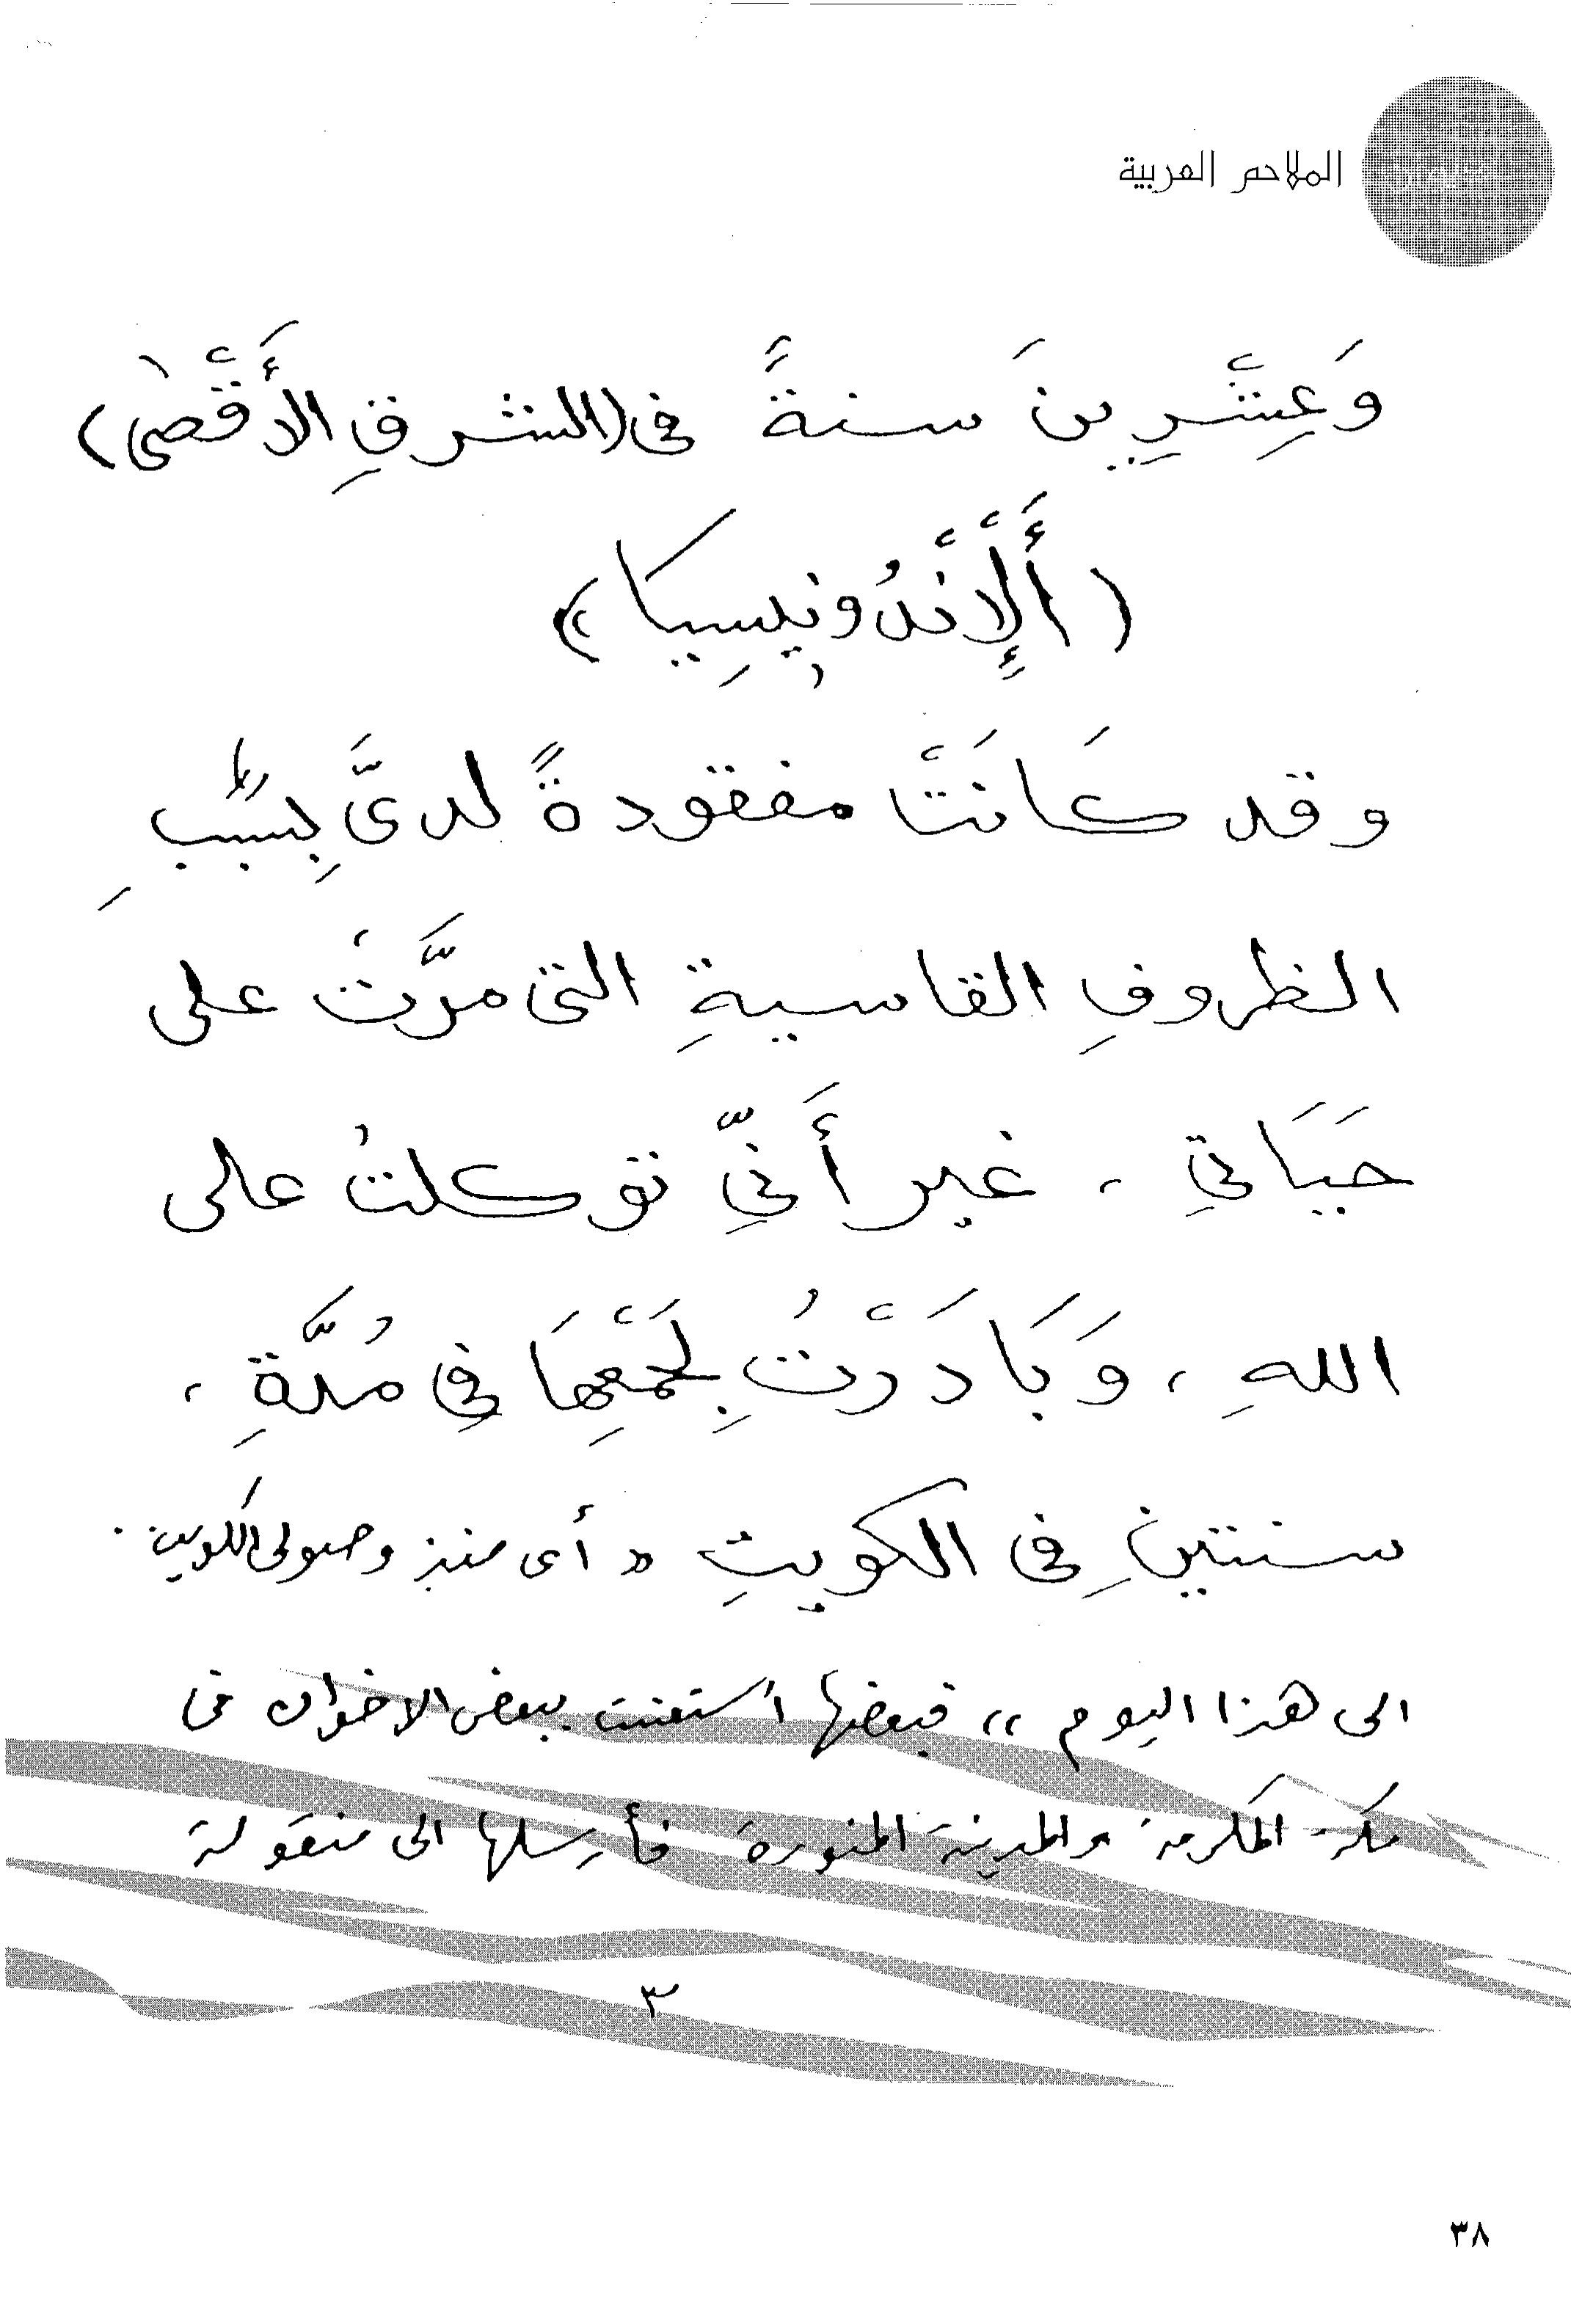 الملاحم العربية
وَعِشْرِينَ سنةً فى (الشرقِ الأَقْصٰى)
(أَلْإِنْدُونِيسِيا)
وقد كَانَتْ مفقودةً لدىَّ بِسببِ
الظروفِ القاسيةِ التى مرَّتْ على
حَيَاتِي، غير أَنِّي توكلتُ على
اللهِ، وَبَادَرْتُ بِجَمْعِهَا فِي مُدَّةِ،
سنتينِ فى الكويتِ «أى منذ وصولى للكويت
الى هذا اليوم»، فبعضها أستعنت ببعض الاخوان فى
مكة المكرمة والمدينة المنورة فأرسلها الى منقولة
٣
٣٨